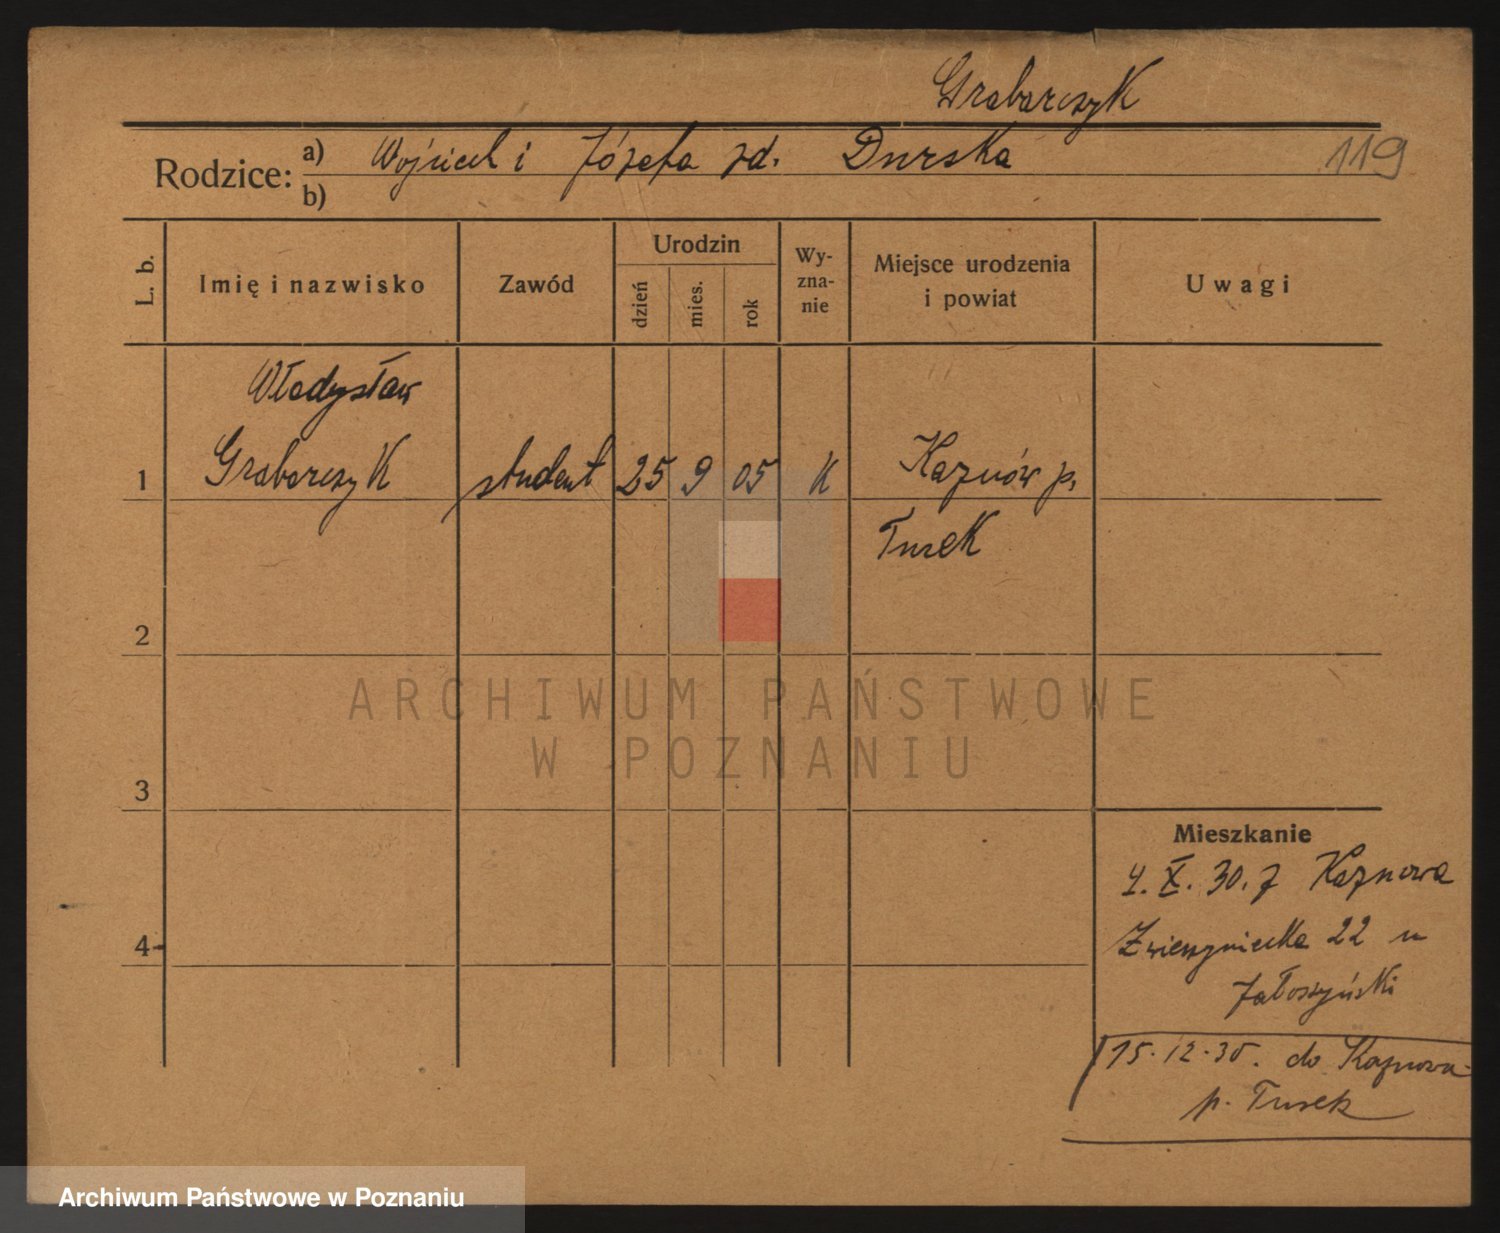 Grabarczyk
Rodzice: a) Wojciech i Józefa zd. Durska
b)
119
L. b.
Imię i nazwisko
Zawód
Urodzin
dzień
mies.
rok
Wy-
zna-
nie
Miejsce urodzenia
i powiat
Uwagi
Władysław
1 Grabarczyk student 25 9 05 K Kaznów p.
Turek
2
3
4
ARCHIWUM PAŃSTWOWE
W POZNANIU
Mieszkanie
4. X. 30. z Kaznowa
Zwierzyniecka 22 u
Jałoszyński
15.12.30. do Kaznowa
p. Turek
Archiwum Państwowe w Poznaniu